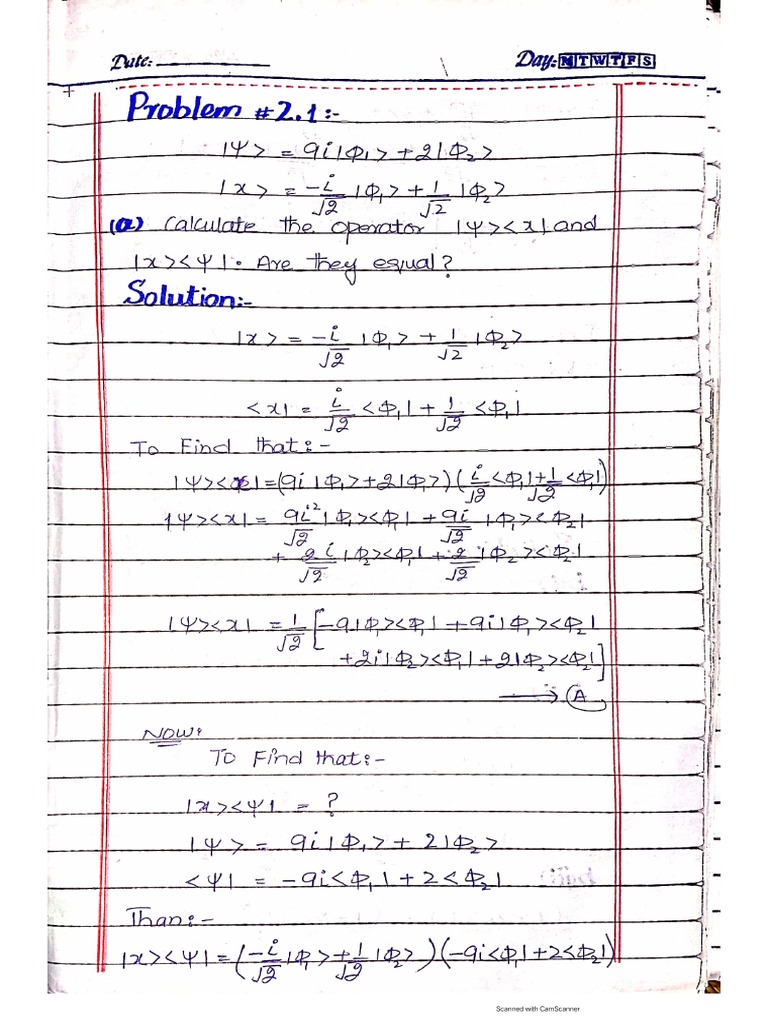 Date: Day: M T W T F S
Problem #2.1:-
|Ψ> = 9i|Φ₁> + 2|Φ₂>
|x> = -i/√2 |Φ₁> + 1/√2 |Φ₂>
(a) Calculate the operator |Ψ><x| and
|x><Ψ|. Are they equal?
Solution:-
|x> = -i/√2 |Φ₁> + 1/√2 |Φ₂>
<x| = i/√2 <Φ₁| + 1/√2 <Φ₁|
To Find that:-
|Ψ><x| = (9i|Φ₁> + 2|Φ₂>) (i/√2 <Φ₁| + 1/√2 <Φ₁|)
|Ψ><x| = 9i²/√2 |Φ₁><Φ₁| + 9i/√2 |Φ₁><Φ₂|
+ 2i/√2 |Φ₂><Φ₁| + 2/√2 |Φ₂><Φ₂|
|Ψ><x| = 1/√2 [-9|Φ₁><Φ₁| + 9i|Φ₁><Φ₂|
+2i|Φ₂><Φ₁| + 2|Φ₂><Φ₂|]
→ (A)
Now:
To Find that:-
|x><Ψ| = ?
|Ψ> = 9i|Φ₁> + 2|Φ₂>
<Ψ| = -9i<Φ₁| + 2<Φ₂|
Than:-
|x><Ψ| = (-i/√2 |Φ₁> + 1/√2 |Φ₂>) (-9i<Φ₁| + 2<Φ₂|)
Scanned with CamScanner